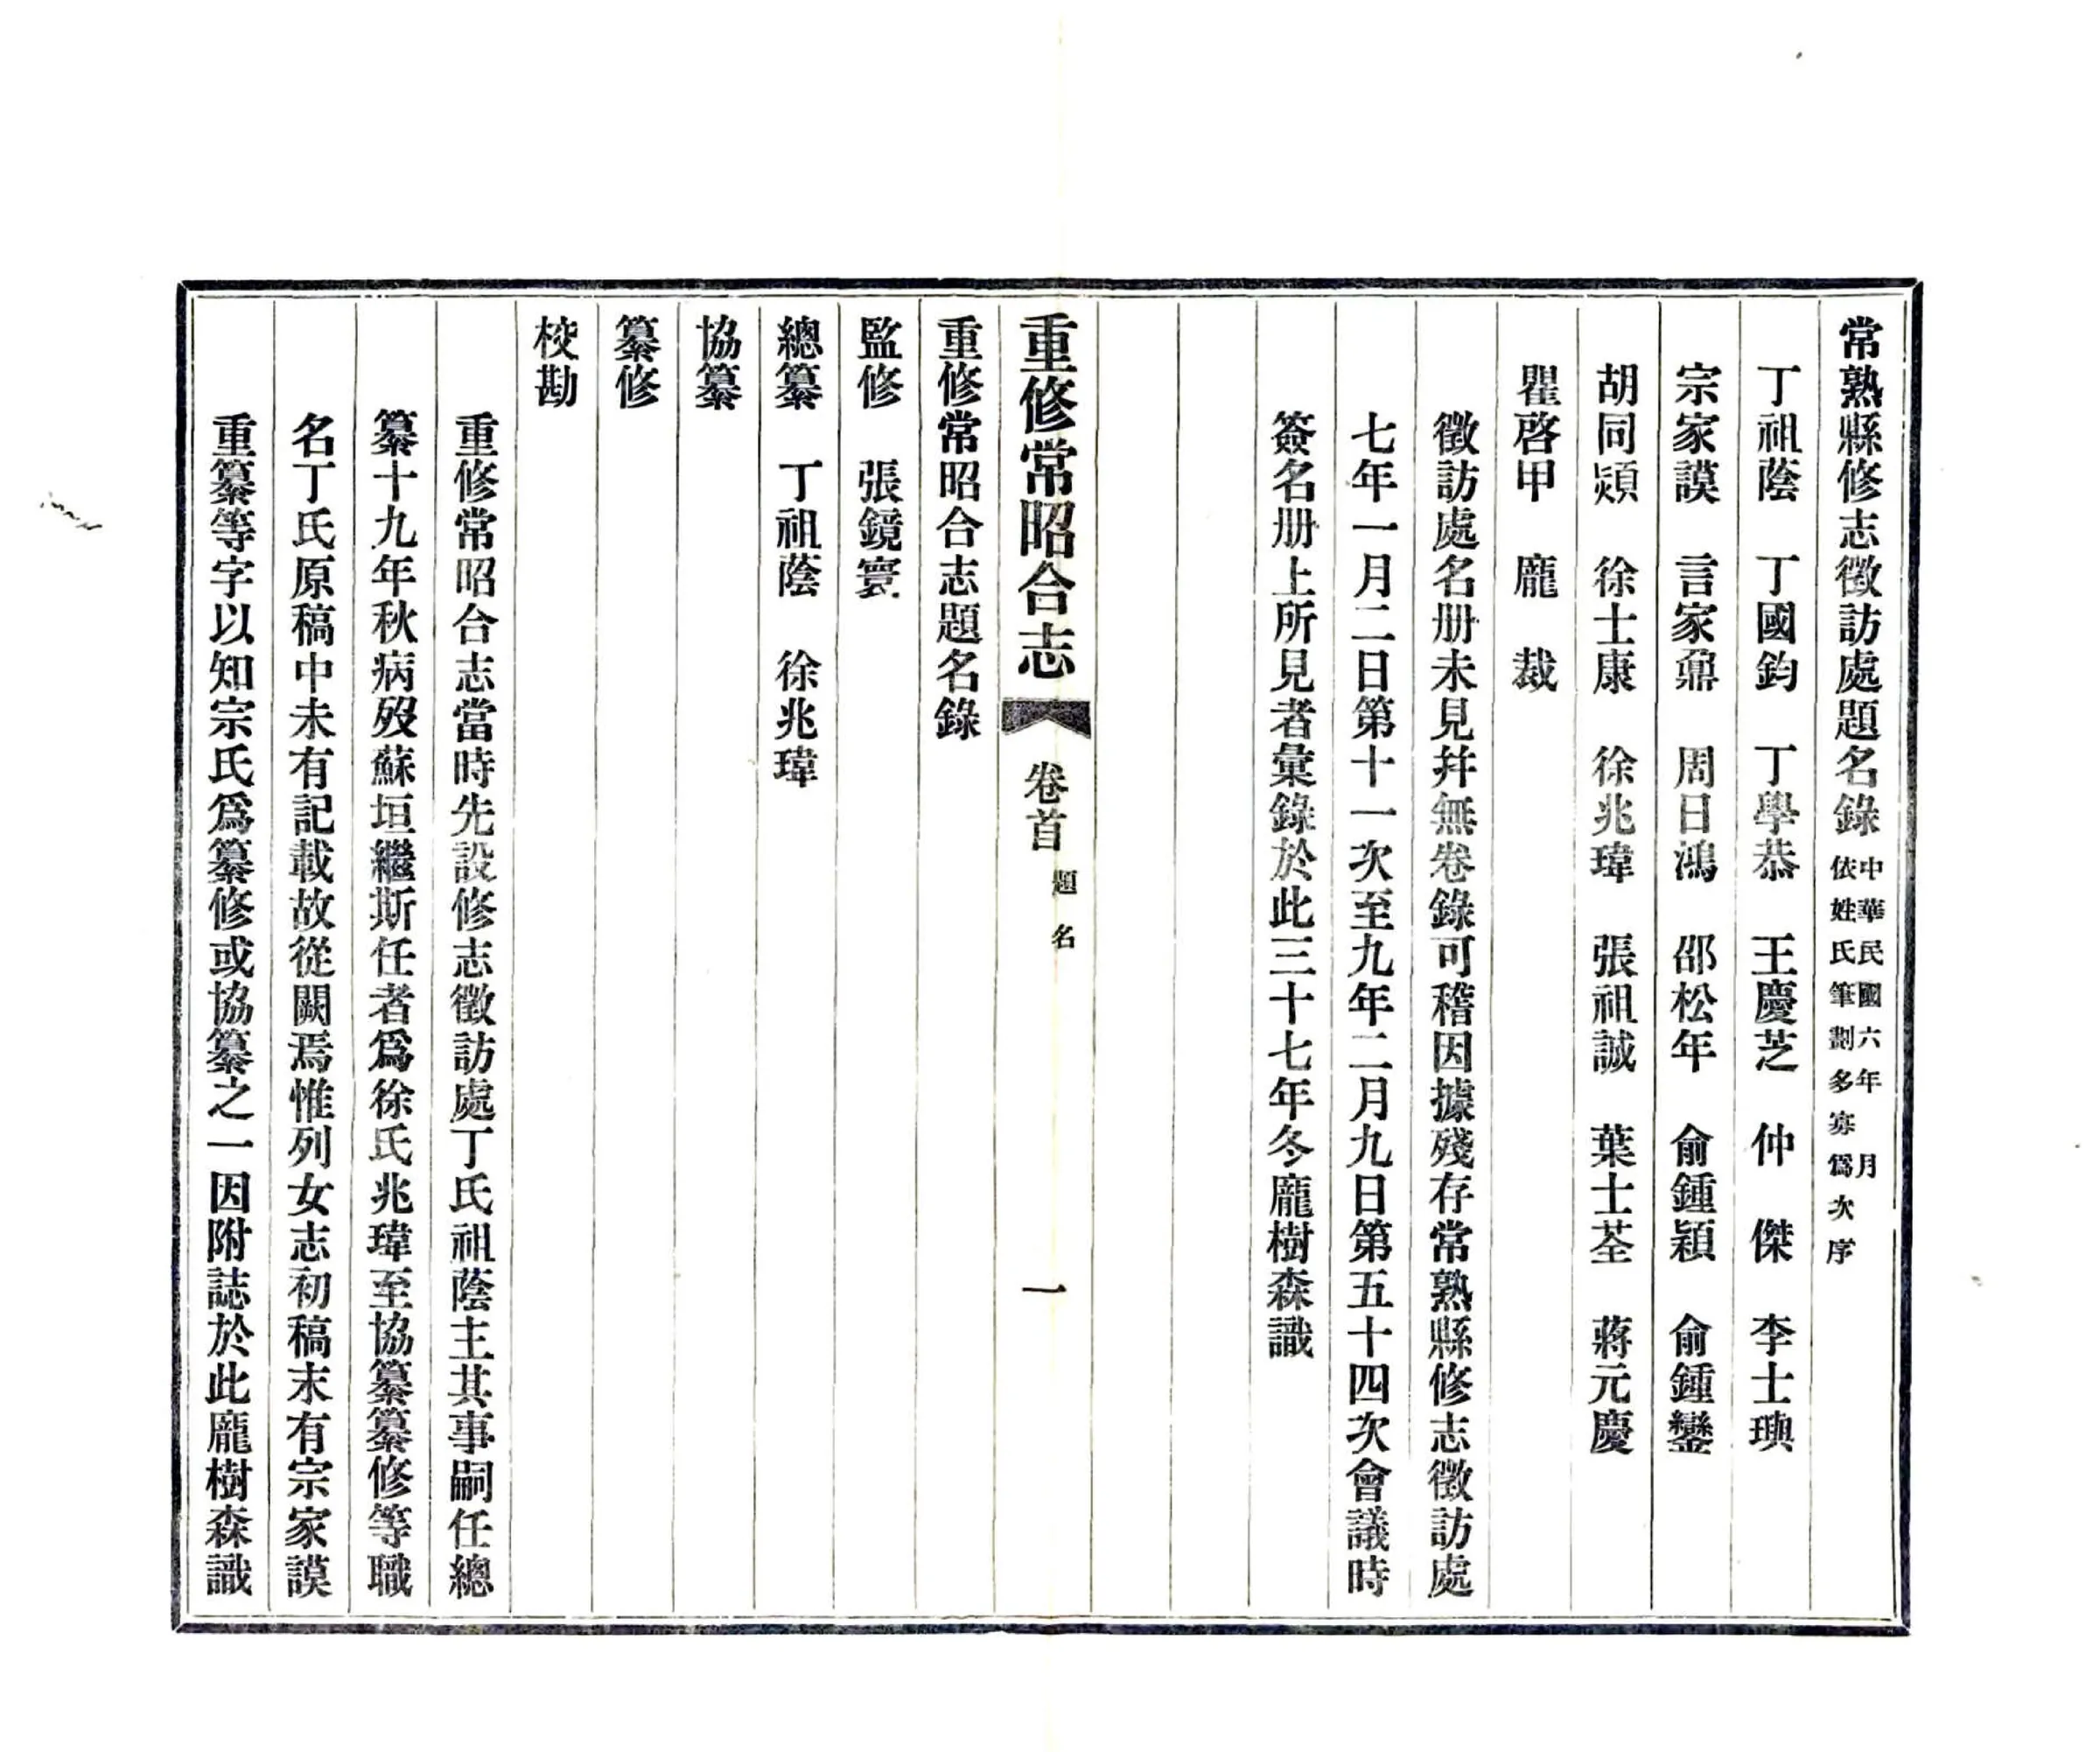 常熟縣修志徵訪處題名錄 中華民國六年 月
依姓氏筆劃多寡爲次序
丁祖蔭 丁國鈞 丁學恭 王慶芝 仲 傑 李士璵
宗家謨 言家鼐 周日鴻 邵松年 俞鍾穎 俞鍾鑾
胡同熲 徐士康 徐兆瑋 張祖誠 葉士荃 蔣元慶
瞿啓甲 龐 裁
徵訪處名册未見幷無卷錄可稽因據殘存常熟縣修志徵訪處
七年一月二日第十一次至九年二月九日第五十四次會議時
簽名册上所見者彙錄於此三十七年冬龐樹森識
重修常昭合志 卷首 題名 一
重修常昭合志題名錄
監修 張鏡寰
總纂 丁祖蔭 徐兆瑋
協纂
纂修
校勘
重修常昭合志當時先設修志徵訪處丁氏祖蔭主其事嗣任總
纂十九年秋病歿蘇垣繼斯任者爲徐氏兆瑋至協纂纂修等職
名丁氏原稿中未有記載故從闕焉惟列女志初稿末有宗家謨
重纂等字以知宗氏爲纂修或協纂之一因附誌於此龐樹森識